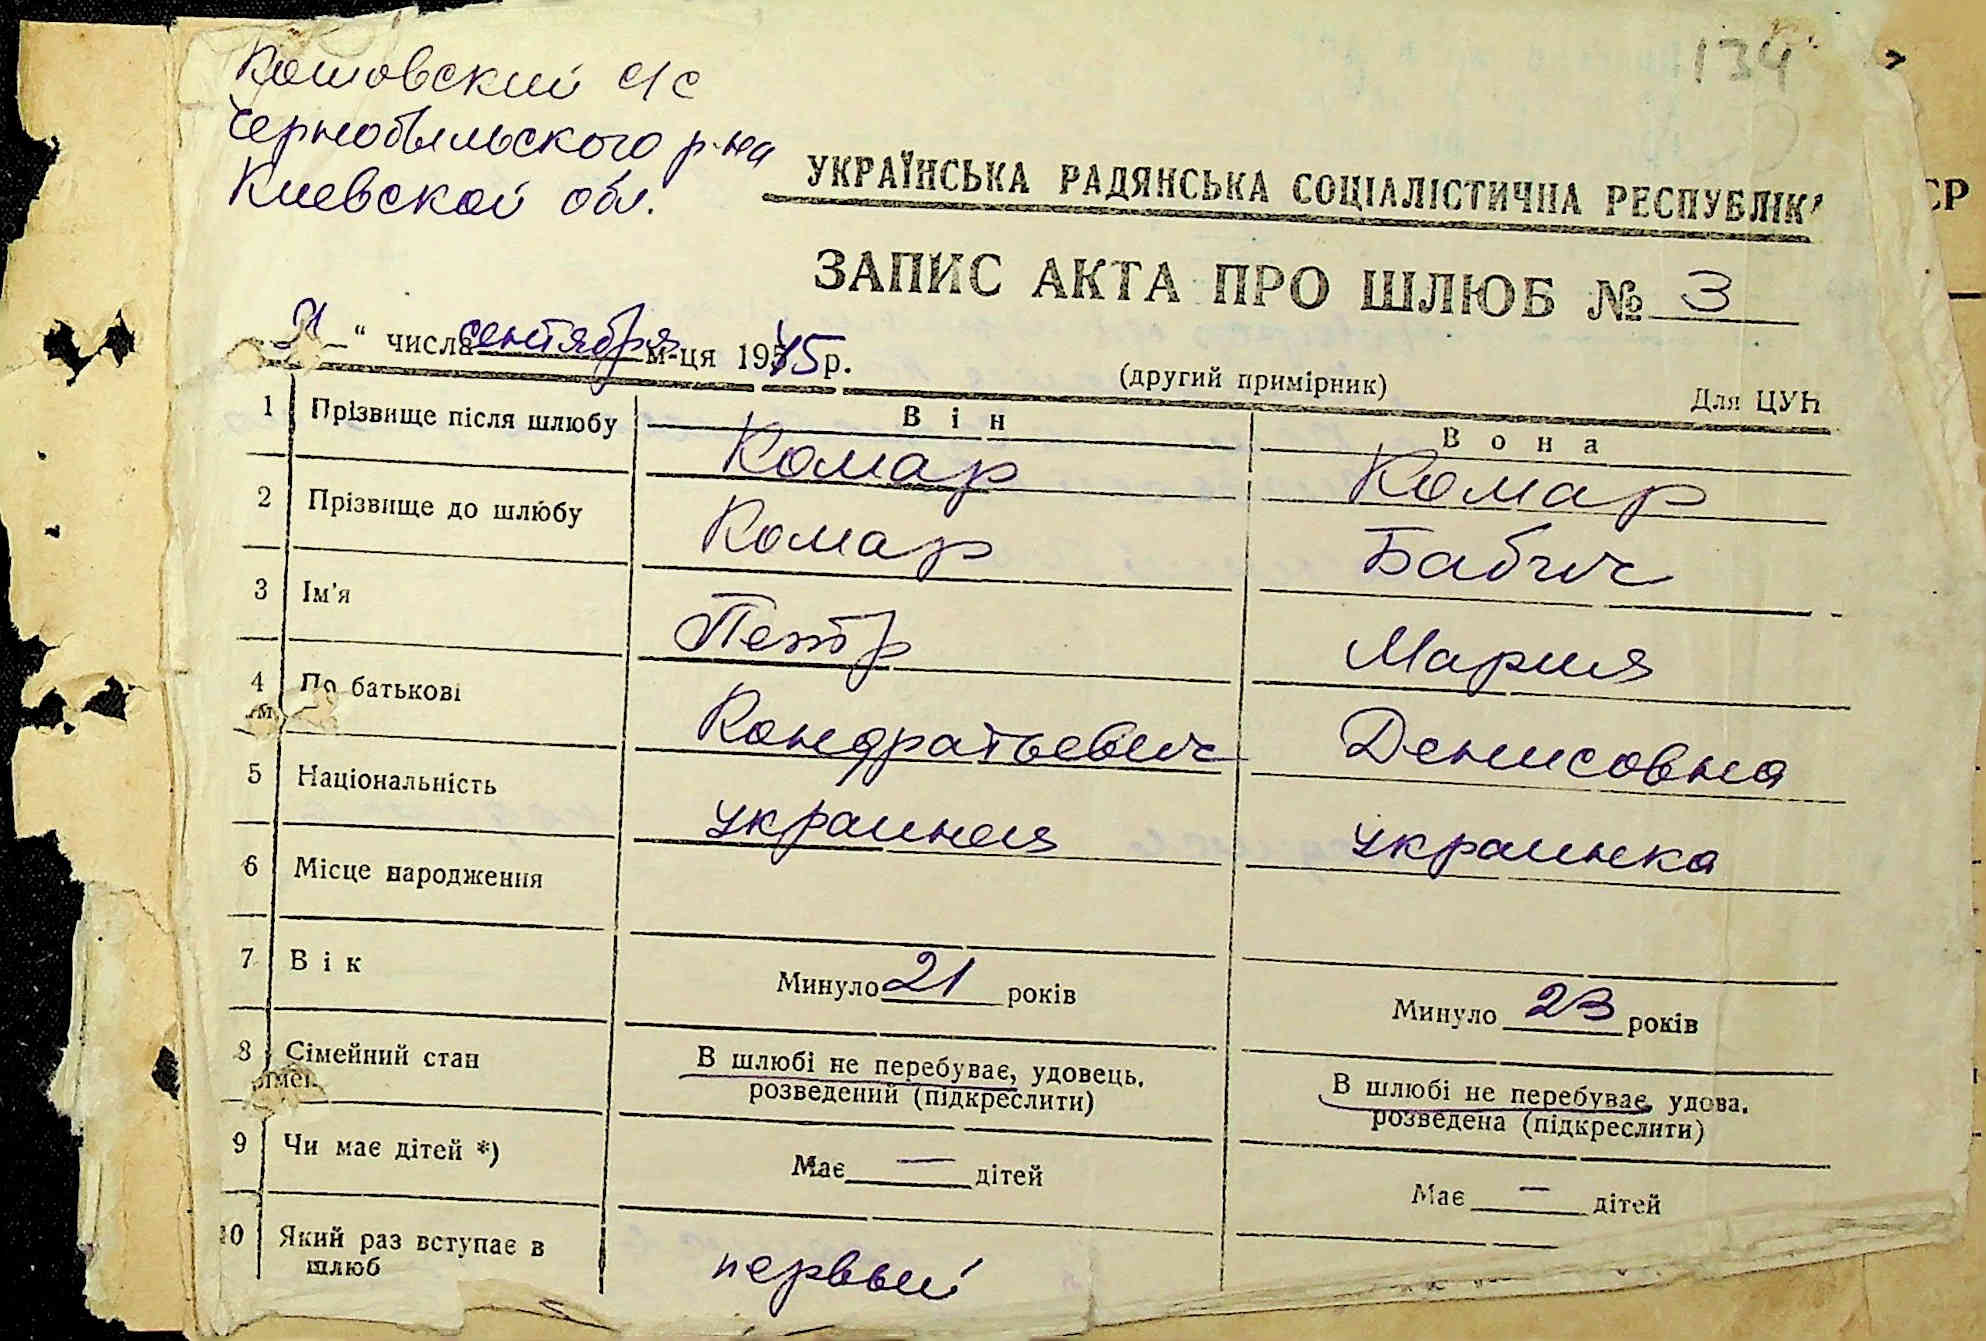 134
Кошовский с/с
Чернобыльского р-на
Киевской обл.
УКРАЇНСЬКА РАДЯНСЬКА СОЦІАЛІСТИЧНА РЕСПУБЛІК
СР
ЗАПИС АКТА ПРО ШЛЮБ № 3
" числа сентября м-ця 1945 р.
(другий примірник) Для ЦУН
Він Вона
1 Прізвище після шлюбу Комар Комар
2 Прізвище до шлюбу Комар Бабич
3 Ім'я Петр Мария
4 По батькові Кондратьевич Денисовна
5 Національність украинец украинка
6 Місце народження
7 Вік Минуло 21 років Минуло 23 років
8 Сімейний стан В шлюбі не перебуває, удовець, розведений (підкреслити) В шлюбі не перебуває, удова, розведена (підкреслити)
9 Чи має дітей *) Має — дітей Має — дітей
10 Який раз вступає в шлюб первый